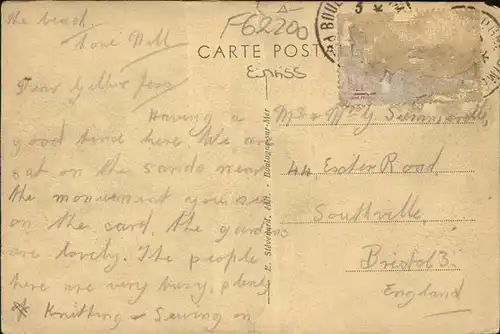 the beach.
Love Will
Dear
Having a
good time here. We are
sat on the sands near
the monument you see
on the card, the gardens
are lovely. The people
here are very busy, plenty
of Knitting & Sewing on
F62200
CARTE POSTALE
E. Stévenard, édit. - Boulogne-sur-Mer
Mr & Mrs G.
44, Exeter Road,
Southville,
Bristol 3.
England